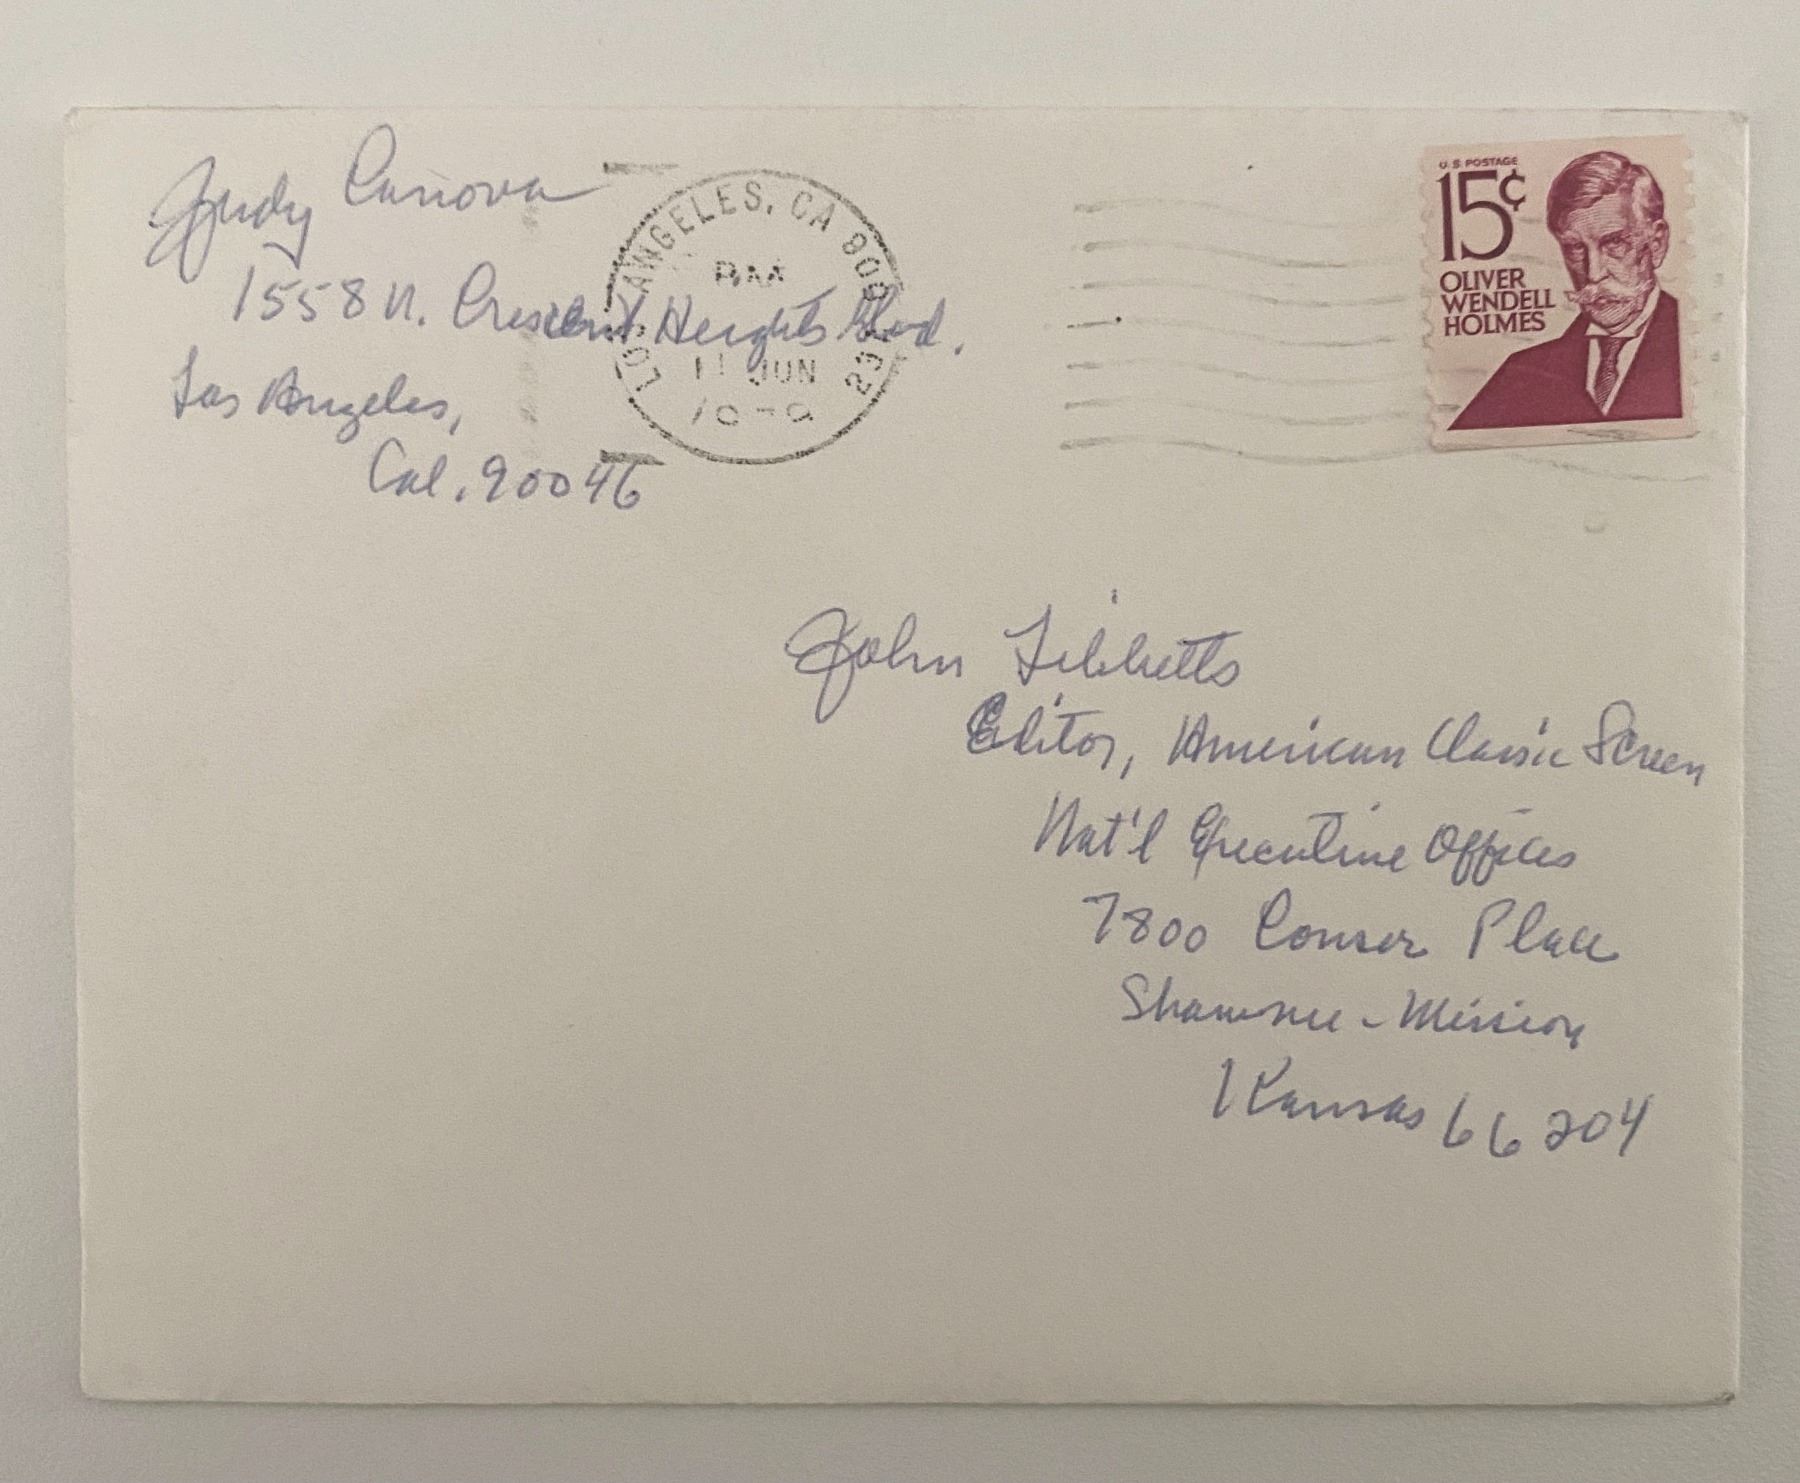 Judy Canova
1558 N. Crescent Heights Blvd.
Los Angeles,
Cal. 90046
LOS ANGELES, CA 900
PM
11 JUN
U.S. POSTAGE
15¢
OLIVER
WENDELL
HOLMES
John Tibbetts
Editor, American Classic Screen
Nat'l Executive Offices
7800 Conser Place
Shawnee-Mission
Kansas 66204